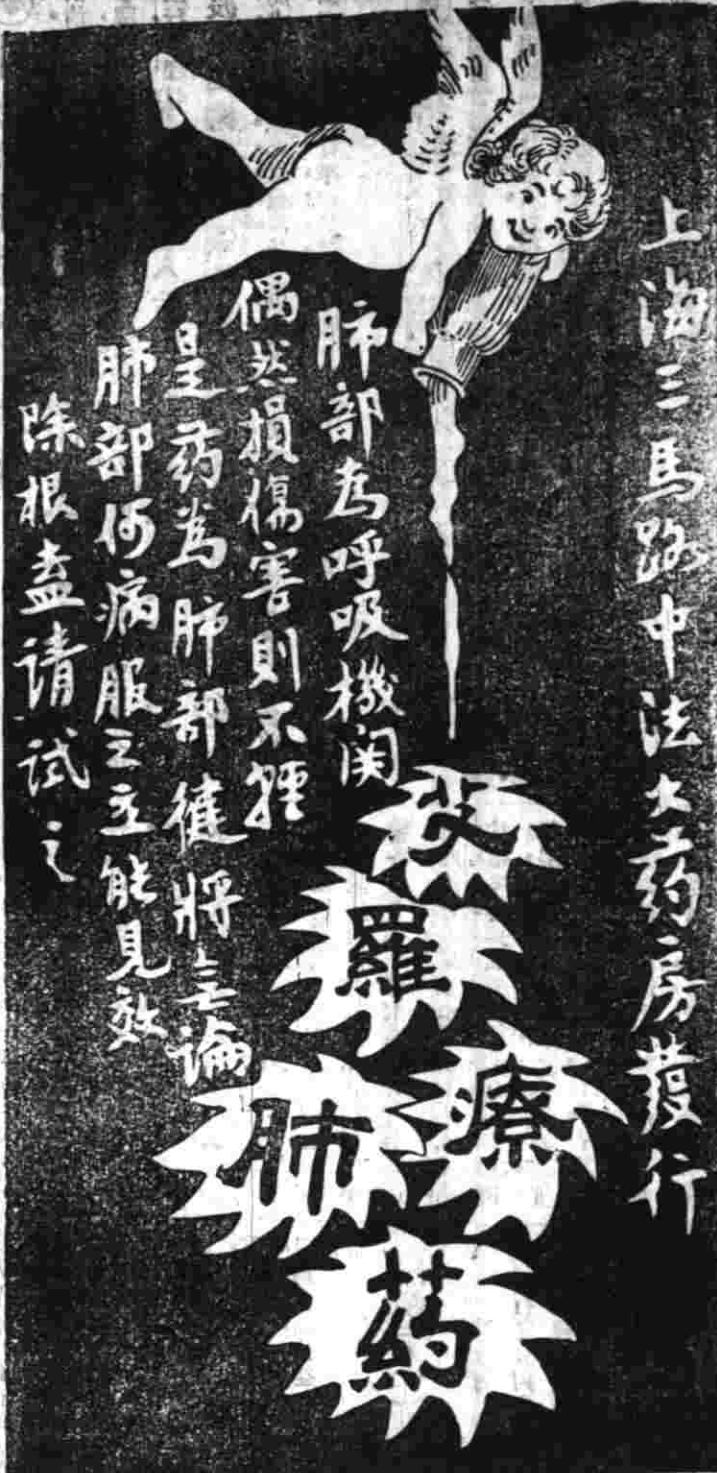 上海三馬路中法大药房發行
艾羅療肺葯
肺部为呼吸機関
偶然損傷害則不軽
是药為肺部徤將无論
肺部何病服之立能見效
除根盍请試之